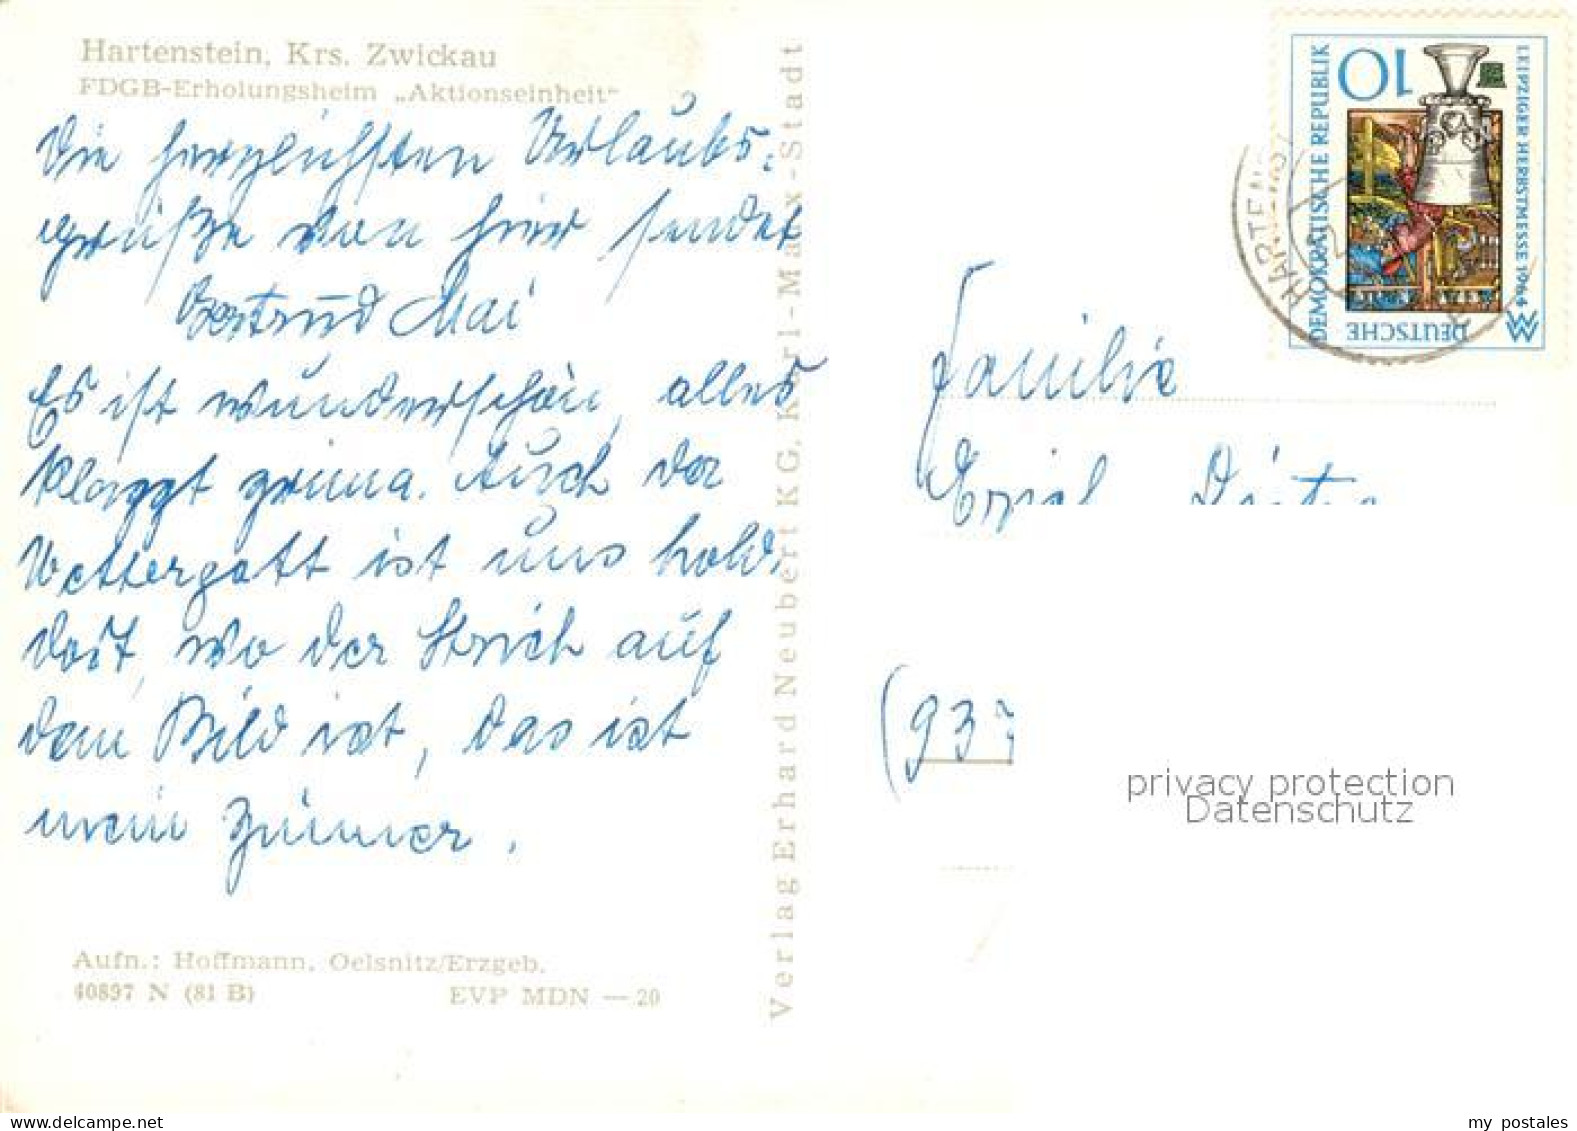 Hartenstein, Krs. Zwickau
FDGB-Erholungsheim „Aktionseinheit"
Die herzlichsten Urlaubs-
grüße von hier sendet
Gertrud Mai
Es ist wunderschön, alles
klappt prima. Auch der
Wettergott ist uns hold,
dort, wo der Strich auf
dem Bild ist, das ist
mein Zimmer.
Aufn.: Hoffmann, Oelsnitz/Erzgeb.
40897 N (81 B)
EVP MDN — 20
Verlag Erhard Neubert KG, Karl-Marx-Stadt
DEUTSCHE
DEMOKRATISCHE REPUBLIK
10
LEIPZIGER HERBSTMESSE 1964
Familie
(93
privacy protection
Datenschutz
my postales